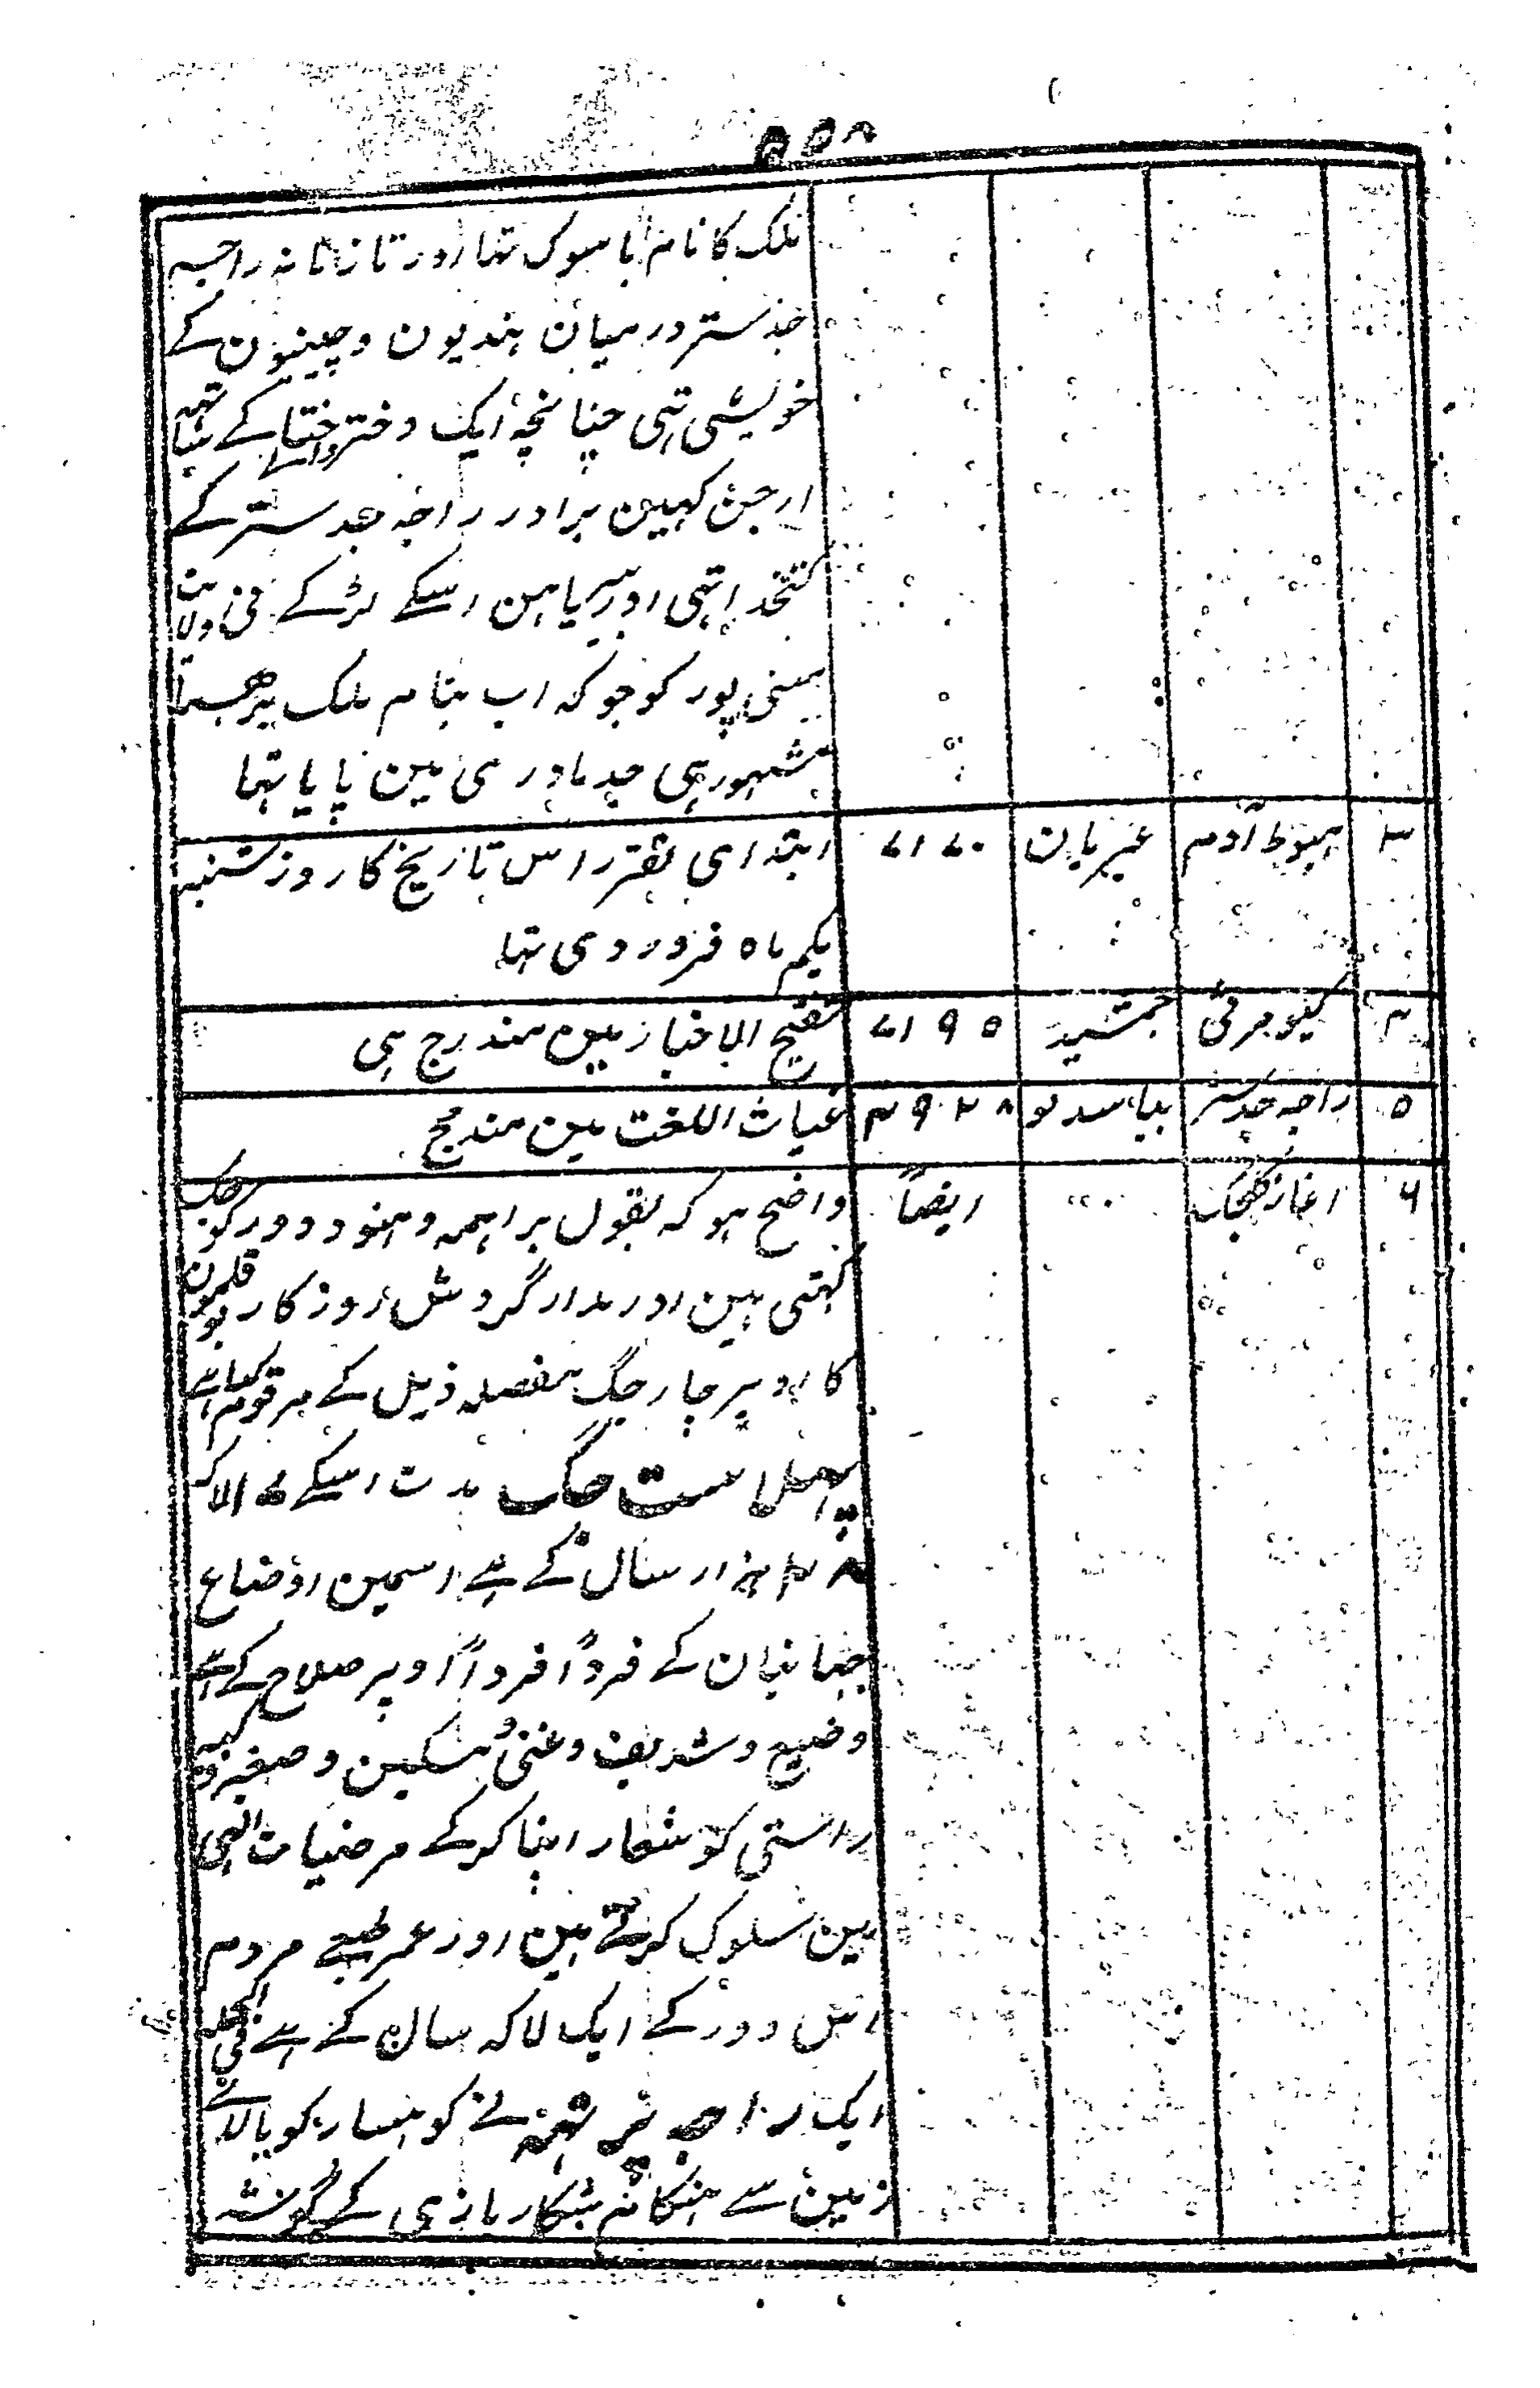 ۵۵۸
ملک کا نام باسوک تہا اور تا زمانہ راجہ
جدستر درمیان ہندیون و چینیون کے
خویشی تہی چنانچہ ایک دختر ختا کے
ارجن کہین برادر راجہ جدستر کے
کتخدا تہی اور اسکے لڑکے نی
پور کو جو کہ اب بنام ملک
مشہور ہی جد مادری مین پایا تہا
۳ ہبوط آدم عبریان ۷۱۷۰ ابتدای تقرر اس تاریخ کا روز شنبہ
یکم ماہ فروردی تہا
۴ کیومرثی جمشید ۷۱۹۵ تنقیح الاخبار مین مندرج ہی
۵ راجہ جدستر بیاسدیو ۴۹۲۸ غیاث اللغت مین مندرج
۶ اغاز کلجک ایضاً واضح ہو کہ بقول براہمہ و ہنود دور کو جک
کہتی ہین اور مدار گردش روزکار بوقلمون
کا اوپر چار جگ مفصلہ ذیل کے مرقوم کیا ہے
پہلا ست جگ مدت اسکے ۱۷ لاکہ
۲۸ ہزار سال کے ہے اسمین اوضاع
جہانیان کے فرداً فرداً اوپر صلاح کے ہے
وضیع و شریف و غنی و مسکین و صغیر و کبیر
راستی کو شعار اپنا کرکے مرضیات الہی
مین سلوک کرتے ہین اور عمر طبعے مردم
اس دور کے ایک لاکہ سال کے ہے فی الجملہ
ایک راجہ پرتہہ نے کوہسار کو بالائے
زمین سے ہنکام شکار بازی کے گوشہ